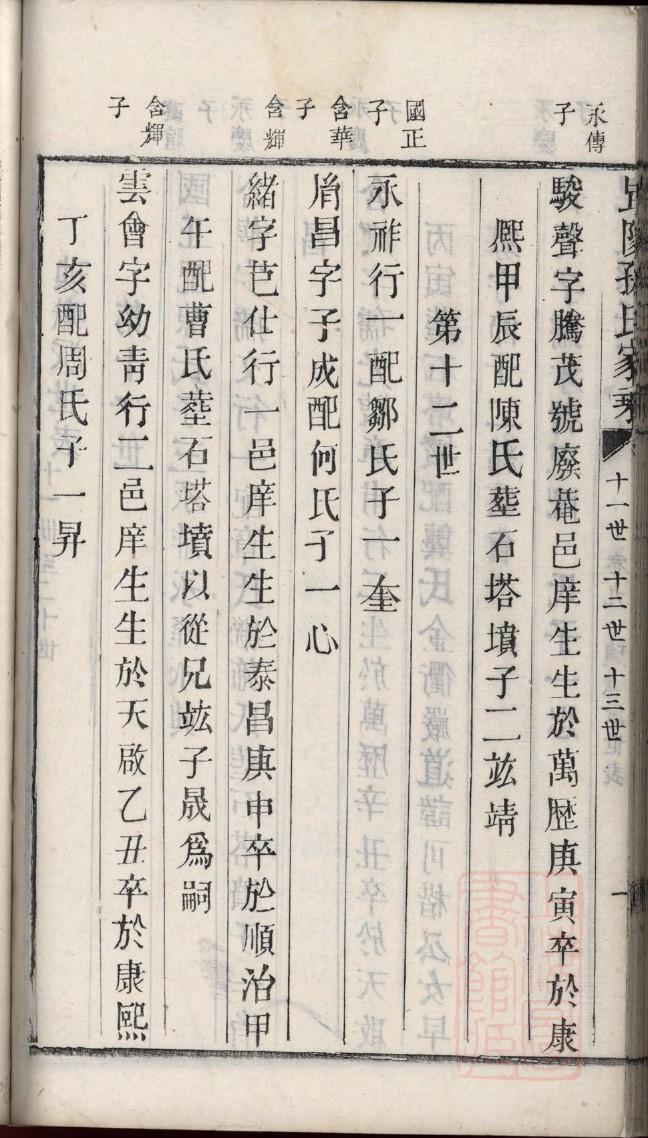 孫氏家乘
十一世 十二世 十三世
一
永傳子
駿聲字騰茂號廢菴邑庠生生於萬歷庚寅卒於康
熙甲辰配陳氏塟石塔墳子二竑靖
第十二世
國正子
永祚行一配鄒氏子一奎
含華子
胤昌字子成配何氏子一心
含輝子
緒字芑仕行一邑庠生生於泰昌庚申卒於順治甲
午配曹氏塟石塔墳以從兄竑子晟爲嗣
含輝子
雲會字幼靑行二邑庠生生於天啟乙丑卒於康熙
丁亥配周氏子一昇